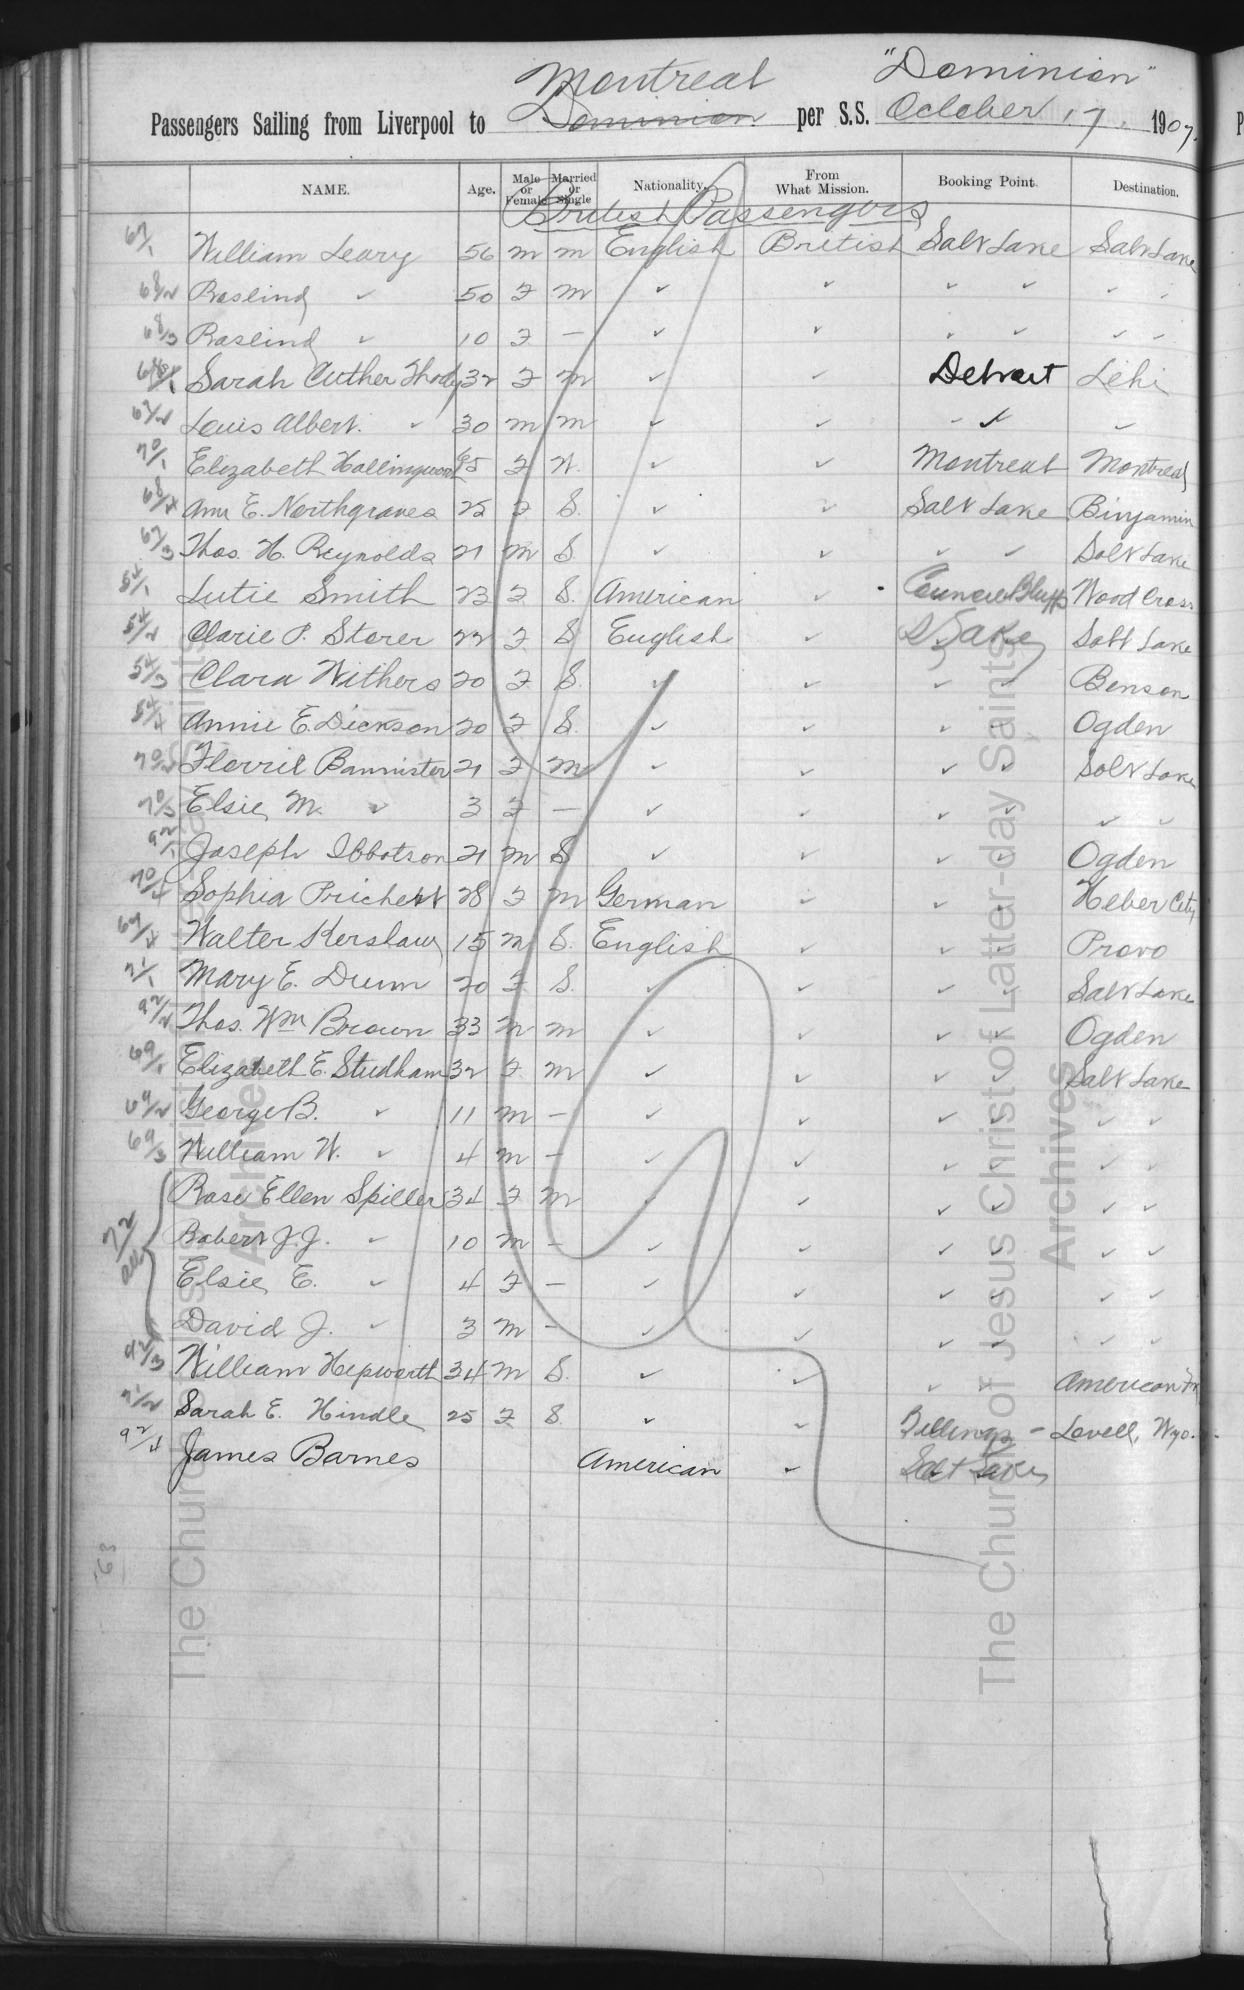 Montreal "Dominion"
Passengers Sailing from Liverpool to Dominion per S.S. October 17. 1907.
NAME. Age. Male or Female Married or Single Nationality. From What Mission. Booking Point. Destination.
British Passengers
67/1 William Leary 56 m m English British Salt Lake Salt Lake
68/2 Roslind ✓ 50 F m ✓ ✓ ✓ ✓ ✓ ✓
68/3 Roslind ✓ 10 F — ✓ ✓ ✓ ✓ ✓ ✓
Sarah Cuther Thody 32 F m ✓ ✓ Detroit Lehi
67/2 Louis Albert. ✓ 30 m m ✓ ✓ ✓ ✓ ✓
70/1 Elizabeth Hollingworth F W. ✓ ✓ Montreal Montreal
68/4 Ann E. Northgraves 22 F S. ✓ ✓ Salt Lake Binjamin
67/3 Thos. H. Reynolds 21 m S ✓ ✓ ✓ ✓ Salt Lake
54/1 Lutie Smith 23 F S. American ✓ Council Bluffs Wood Cross
54/2 Clarie P. Storer 22 F S English ✓ S Lake Salt Lake
54/3 Clara Withers 20 F S. ✓ ✓ ✓ ✓ Benson
54/4 Annie E. Dickson 20 F S. ✓ ✓ ✓ Ogden
70/2 Florrie Bannister 21 F m ✓ ✓ ✓ ✓ Salt Lake
70/3 Elsie M. ✓ 3 F — ✓ ✓ ✓ ✓ ✓ ✓
92/1 Joseph Ibbotson 21 m S ✓ ✓ ✓ ✓ Ogden
70/4 Sophia Prichett 28 F m German ✓ ✓ ✓ Heber City
67/4 Walter Kershaw 15 m S. English ✓ ✓ ✓ Provo
71/1 Mary E. Dunn 20 F S. ✓ ✓ ✓ ✓ Salt Lake
92/2 Thos. Wm Brown 33 m m ✓ ✓ ✓ ✓ Ogden
69/1 Elizabeth E. Studham 32 F m ✓ ✓ ✓ ✓ Salt Lake
69/2 George B. ✓ 11 m — ✓ ✓ ✓ ✓ ✓ ✓
69/3 William W. ✓ 4 m — ✓ ✓ ✓ ✓ ✓ ✓
72/all Rose Ellen Spiller 34 F m ✓ ✓ ✓ ✓ ✓ ✓
Robert J.J. ✓ 10 m — ✓ ✓ ✓ ✓ ✓ ✓
Elsie E. ✓ 4 F — ✓ ✓ ✓ ✓ ✓ ✓
David J. ✓ 3 m — ✓ ✓ ✓ ✓ ✓ ✓
92/3 William Hepworth 34 m S. ✓ ✓ ✓ ✓ American
71/2 Sarah E. Hindle 25 F S. ✓ ✓ Billings — Lovell, Wyo.
92/4 James Barnes American ✓ Salt Lake
63
The Church of Jesus Christ of Latter-day Saints
Archives
The Church of Jesus Christ of Latter-day Saints
Archives